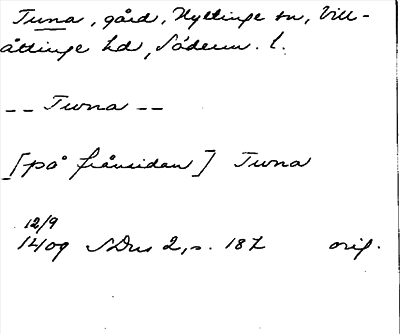 Tuna, gård, Hyltinge sn, Vill-
åttinge hd, Söderm. l.
-- Twna --
[på frånsidan] Twna
12/9
1409 SDns 2, s. 187 orig.